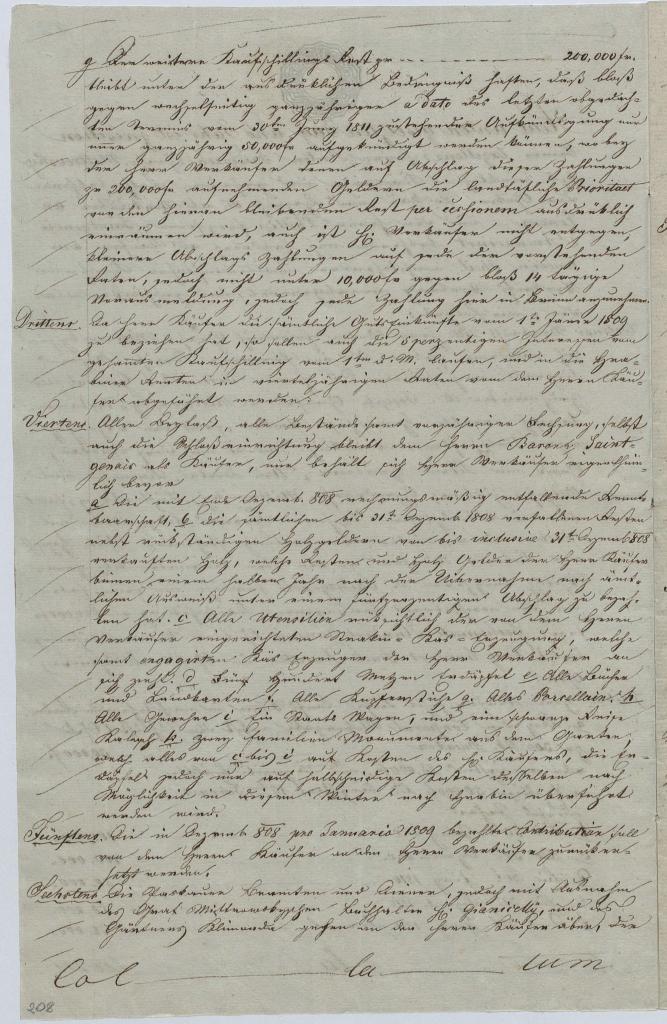 g Der weitere Kaufschillings Rest pr — — — 200,000 fr.
bleibt unter der ausdrüklichen Bedingniß haften, daß bloß
gegen wechselseitig ganzjähriger a Dato des letzten obgedach-
ten Termins vom 30ten Juny 1811 zustehender Aufkündigung nur
immer ganzjährig 50,000 fr aufgekündigt werden können, wo bey
der Herr Verkäufer denen auf Abschlag dieser Zahlungen
zu 200,000 fr aufnehmenden Geldern die landtäfliche Prioritaet
vor den hieran bleibenden Rest per cessionem ausdrüklich
einräumen wird, auch ist H: Verkäufer nicht entgegen,
kleinere Abschlags Zahlungen auf jede der vorstehenden
Raten, jedoch nicht unter 10,000 fr gegen bloß 14 tägige
Vorausmeldung, jedoch jede Zahlung hier in Brünn anzunehmen.
Drittens. Da Herr Käufer die sämtliche Gutseinkünfte vom 1ten Jäner 1809
zu beziehen hat, so sollen auch die 5 perzentigen Interessen vom
gesamten Kaufschilling vom 1ten d. M. laufen, und in die
Renten in vierteljährigen Raten von dem Herrn Käu-
fer abgeführt werden.
Viertens. Aller Beylaß, alle Bestände samt vorjähriger Fechsung, selbst
auch die Schloßeinrichtung bleibt dem Herrn Baron Saint-
genois als Käufer, nur behält sich Herr Verkäufer eigenthüm-
lich bevor
a Die mit Ende Dezemb. 808 rechnungsmäßig entfallende Rent-
baarschaft, b die sämtlichen bis 31ten Dezemb 1808 verfallenen Resten
nebst rükständigen Holzgeldern von bis inclusive 31ten Dezemb 808
verkauften Holz, welche Resten und Holz Gelder der Herr Käufer
binnen einem halben Jahr nach der Uibernahme nach amt-
lichen Ausweiß unter einem fünfperzentigen Abschlag zu bezah-
len hat. c Alle Utensilien der von dem Herrn
Verkäufer eingerichteten Käs-Erzeugung, welche
samt engagirten Käs Erzeuger der Herr Verkäufer an
sich zieht. d Fünf Hundert Metzen Erdäpfel e Alle Bücher
und Landkarten f. Alle Kupferstiche g. Altes Porcellain. h
Alle Gewehre i Ein Staats Wagen, und eine schwarze Reise
Kalesch k. zwey Familien Monumente aus dem Garten,
welch alles von c bis i auf Kosten des H: Käufers, die Er-
däpfel jedoch nur auf halbscheidige Kosten desselben nach
Möglichkeit in diesem Winter nach überführt
werden wird.
Fünftens. Die in Dezemb 808 pro Januario 1809 bezahlte Contribution soll
von dem Herrn Käufer an den Herrn Verkäufer zurüker-
setzt werden.
Sechstens Die Paskauer Beamten und Diener, jedoch mit Ausnahm
des Graf Mittrowskyschen Buchhalter H: und des
Gärtners Klimonda gehen an den Herrn Käufer über, der
Col — la — tum
208